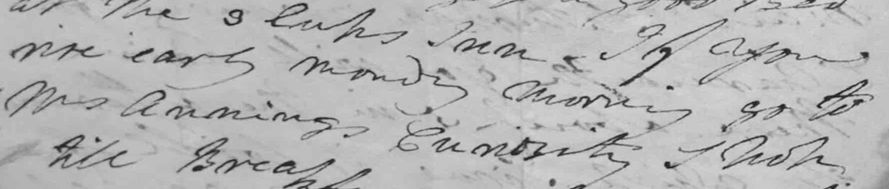 at the 3 Cups Inn - If you
rise early monday morning go to
Mrs Annings Curiosity Shop
till Breakf